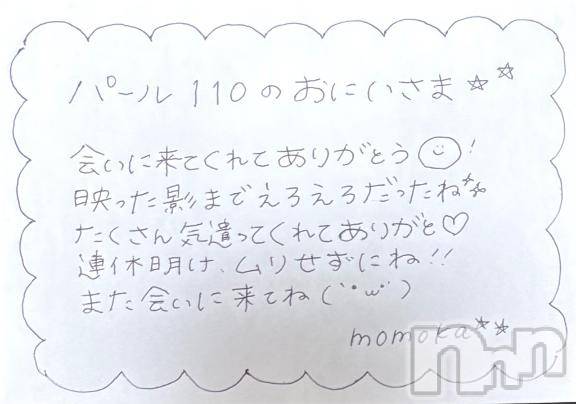 パール110のおにいさま☆☆
会いに来てくれてありがとう!
映った影までえろえろだったね☆☆
たくさん気遣ってくれてありがと♡
連休明け、ムリせずにね!!
また会いに来てね(˙ω˙)
momoka☆☆